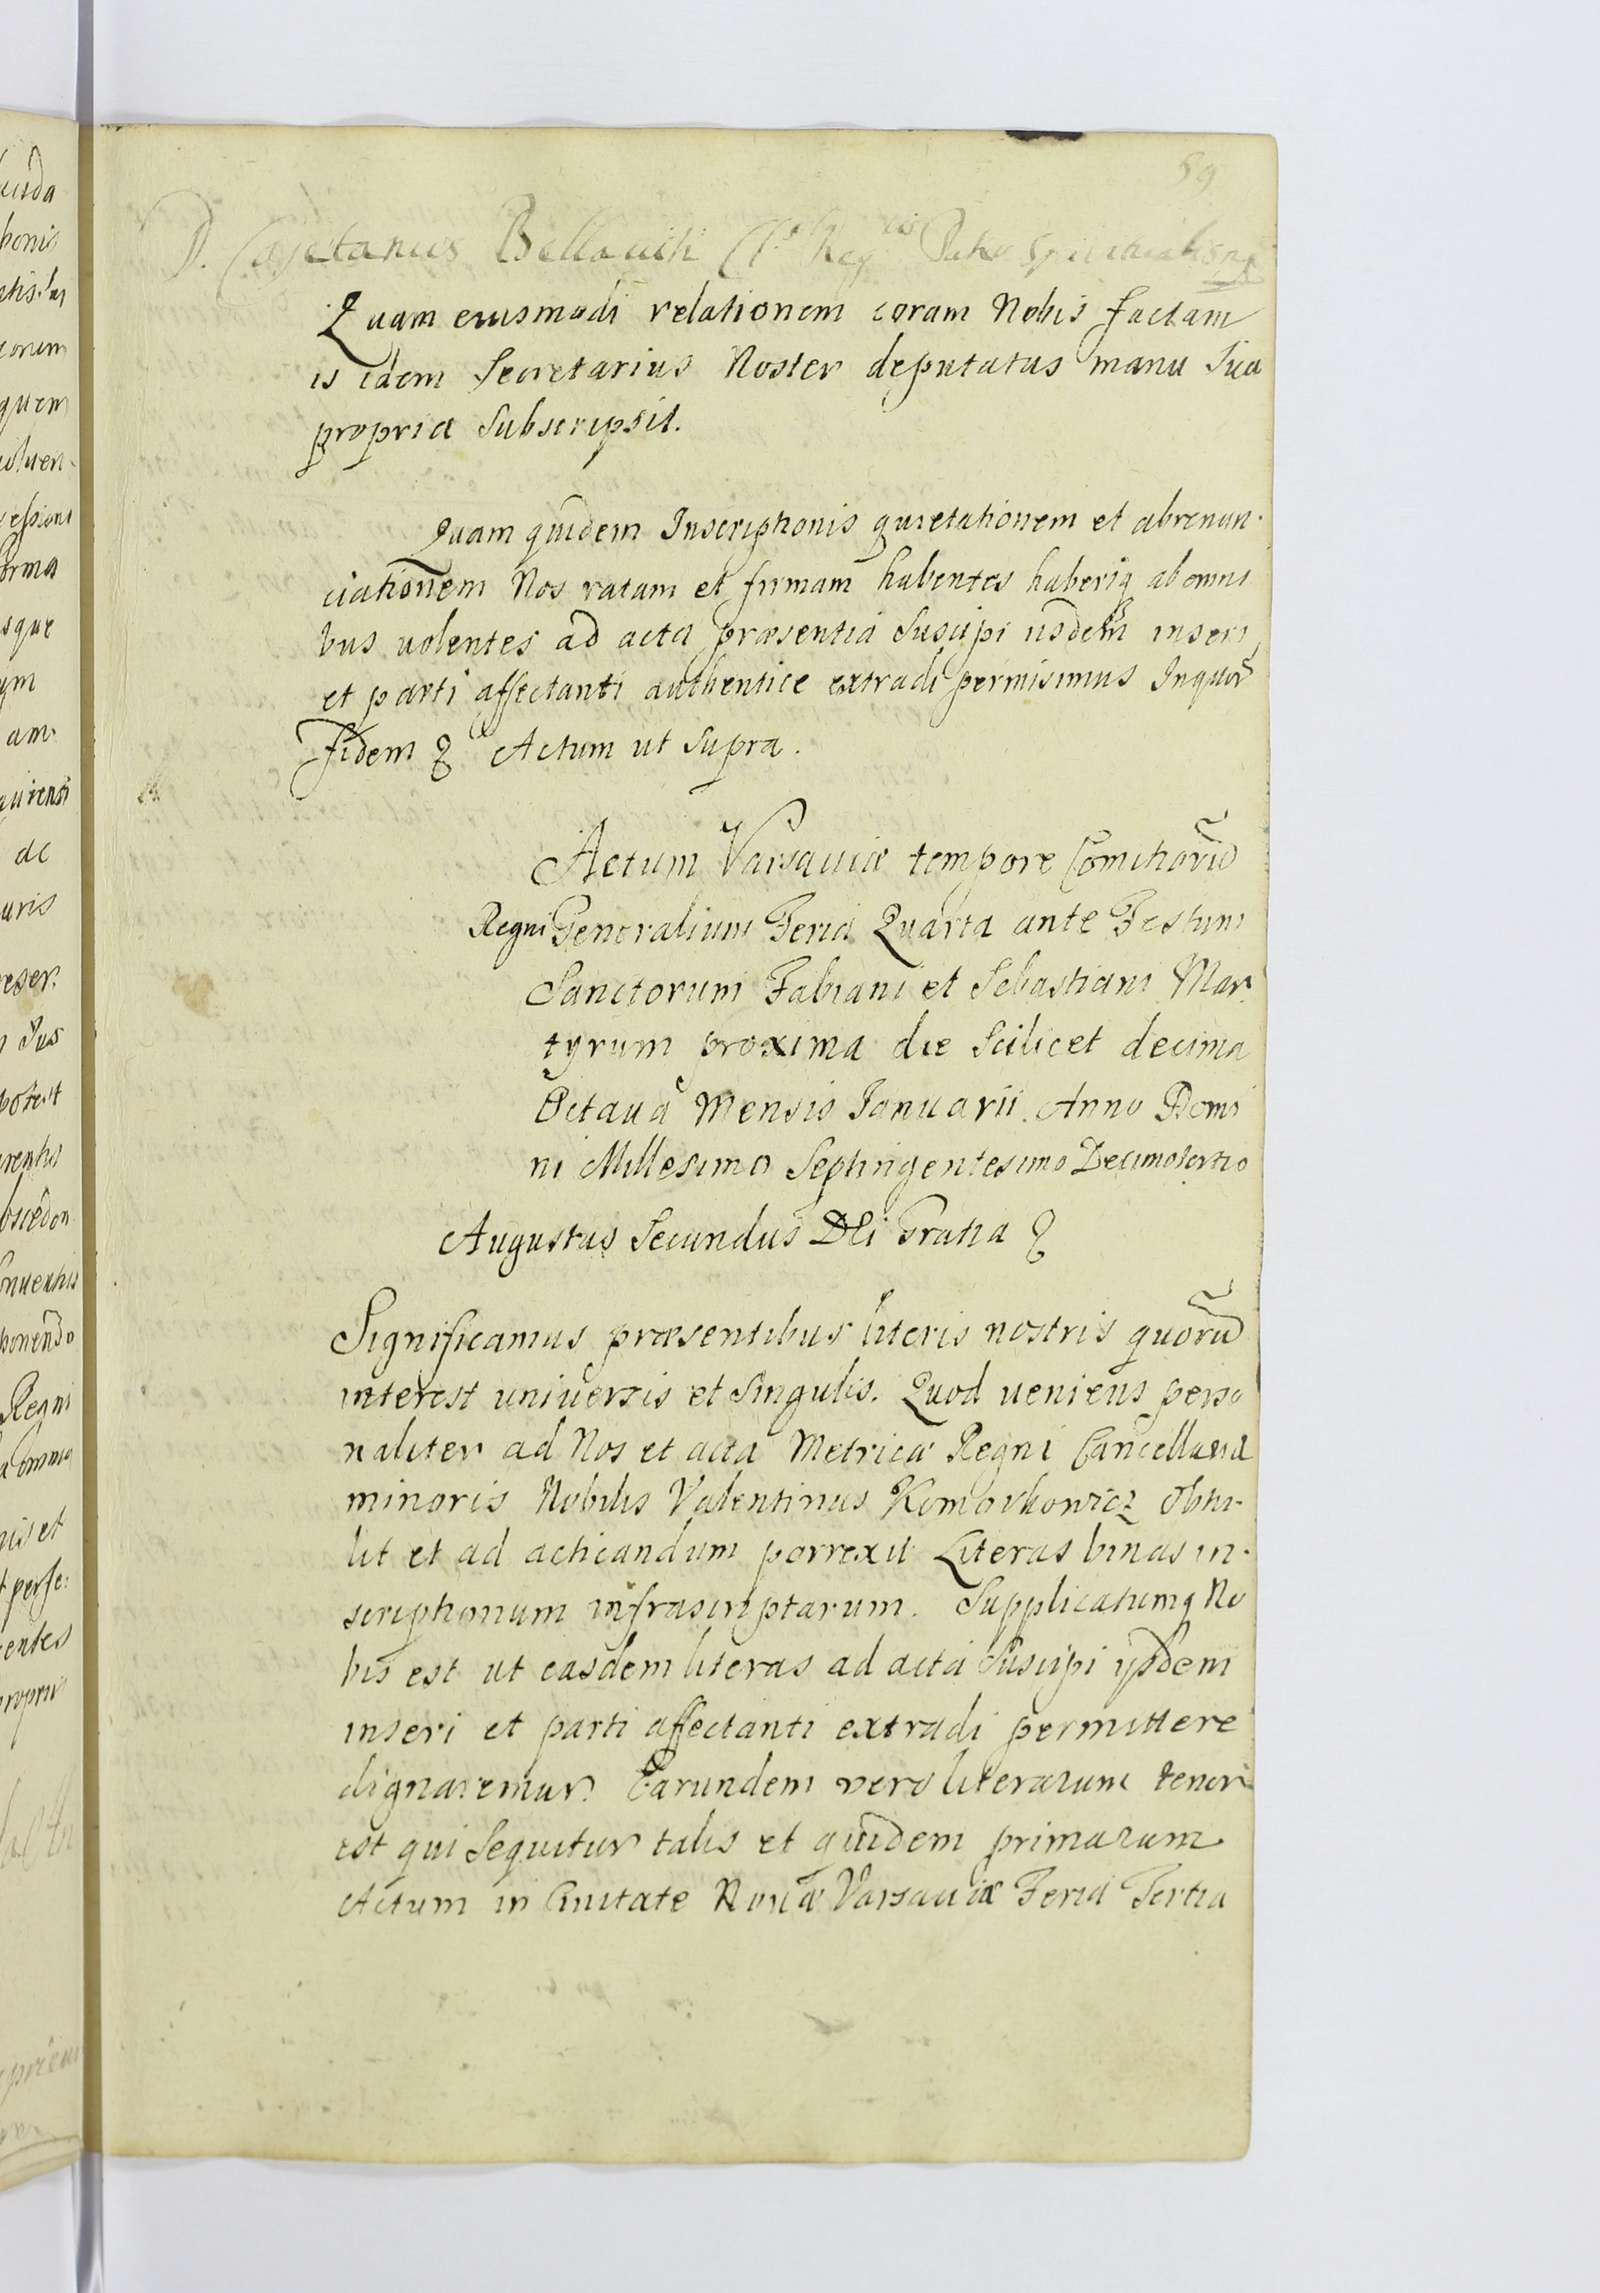 59
D. Cajetanus
Quam eiusmodi relationem coram Nobis factam
is idem Secretarius Noster deputatus manu Sua
propria Subscripsit.
Quam quidem Inscriptionis quietationem et abrenun-
ciationem Nos ratam et firmam habentes haberiq ab omni
bus uolentes ad acta præsentia Suscipi iisdem inseri
et parti affectanti authentice extradi permisimus Inquor
fidem Actum ut Supra.
Actum Varsauiæ tempore Comitiorũ
Regni Generalium Feria Quarta ante Festum
Sanctorum Fabiani et Sebastiani Mar
tyrum proxima die Scilicet decima
Octaua Mensis Januarii Anno Domi
ni Millesimo Septingentesimo Decimotertio
Augustus Secundus Dei Gratia
Significamus præsentibus literis nostris quorũ
interest uniuersis et Singulis. Quod ueniens perso
naliter ad Nos et acta Metricæ Regni Cancellariæ
minoris Nobilis Valentinus Komorkowicz obtu-
lit et ad acticandum porrexit Literas binas in-
scriptionum infrascriptarum. Supplicatumq No
bis est ut easdem literas ad acta Suscipi ysdem
inseri et parti affectanti extradi permittere
dignaremur. Earundem vero literarum tenor
est qui Sequitur talis et quidem primarum
Actum in Ciuitate Noua Varsauiæ Feria Tertia